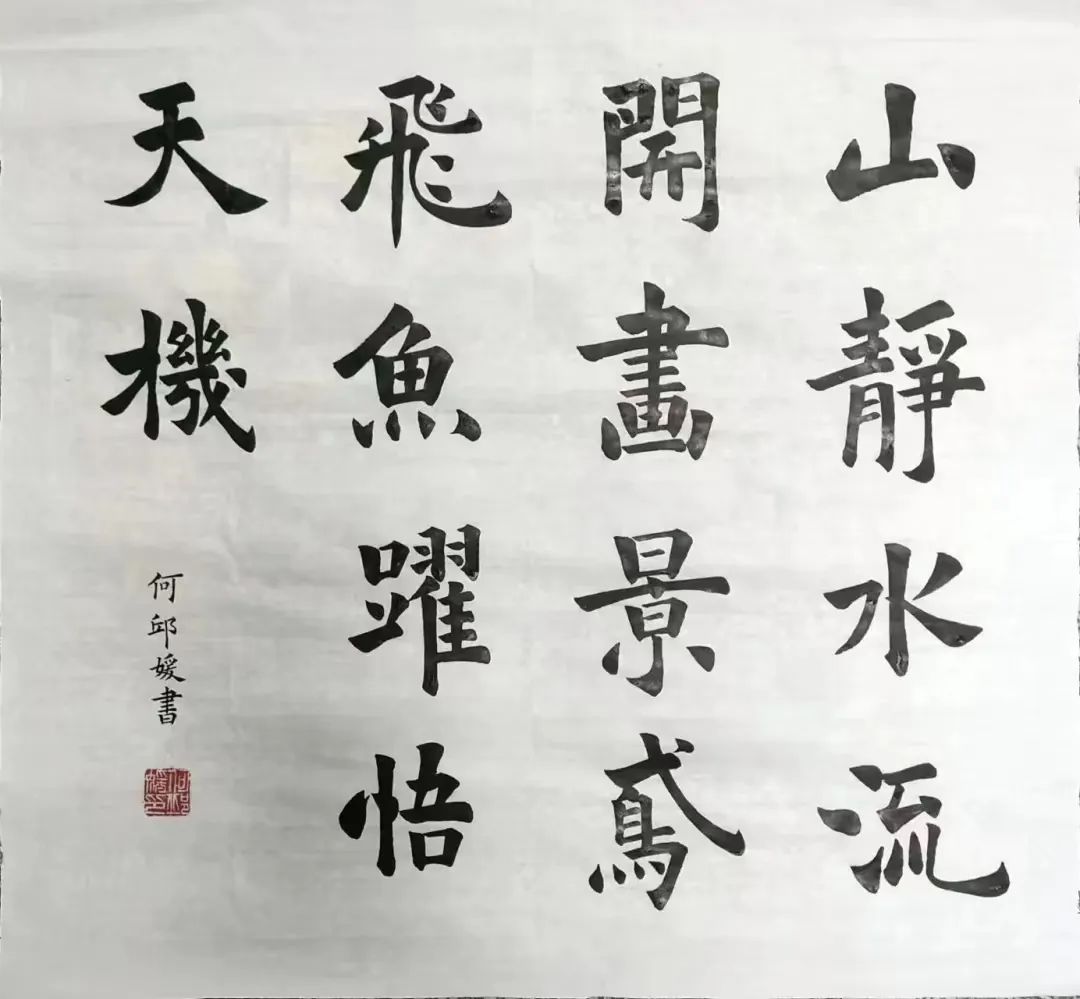 山靜水流
開畫景鳶
飛魚躍悟
天機
何邱媛書